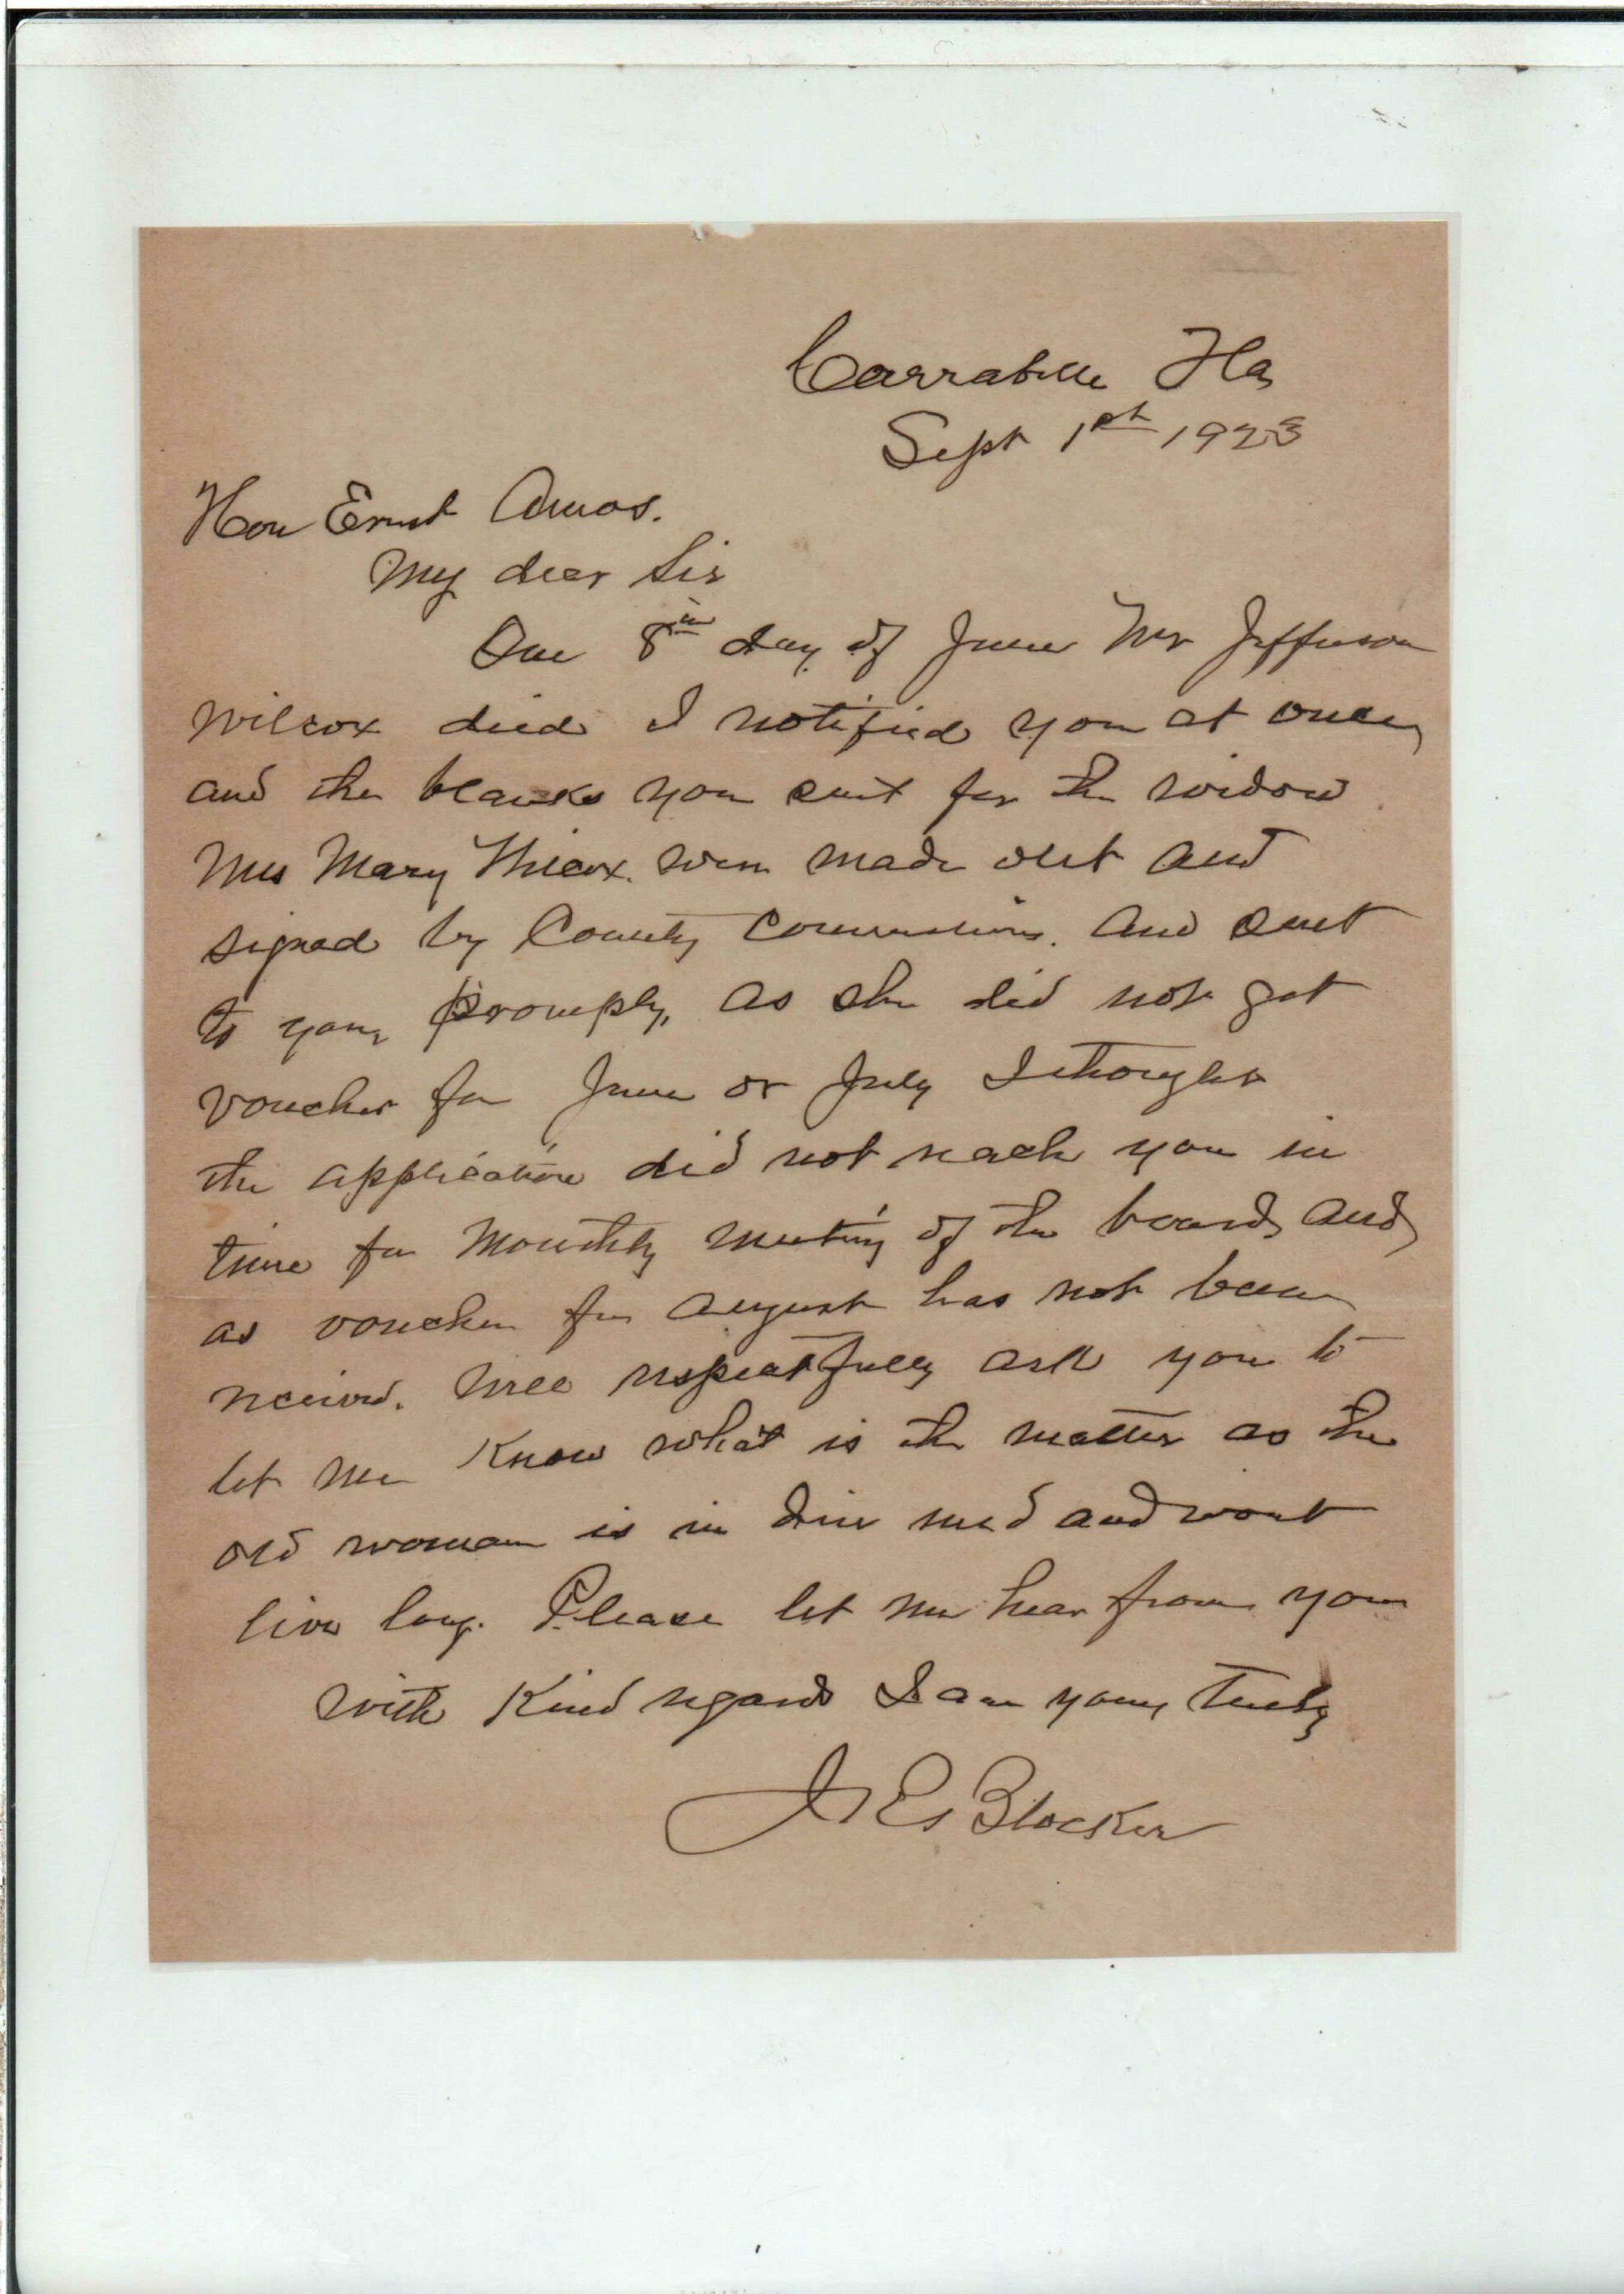 Carrabelle Fla
Sept 1st 1923
Hon Ernest Amos.
My dear Sir
One 8th day of June Mr Jefferson
Wilcox died I notified you at once,
and the blanks you sent for the widow
Mrs Mary Wilcox. were made out and
signed by County Commissioners. and sent
to you, promply, as she did not get
voucher for June or July I thought
the application did not reach you in
time for Monthly meeting of the board, and
as voucher for August has not been
received. Will respectfully ask you to
let me Know what is the matter as the
old woman is in dire need and wont
live long. Please let me hear from you
with Kind regards I am yours Truly
J E Blocker